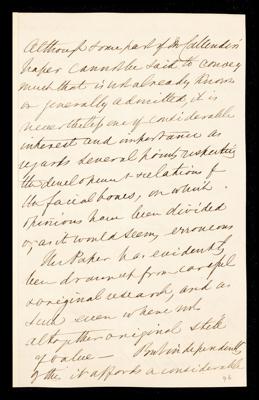 Although some part of Mr Callender's
Paper cannot be said to convey
much that is not already known
or generally admitted, it is
nevertheless one of considerable
interest and importance as
regards several points respecting
the development & relations of
the facial bones, on which
opinions have been divided
or, as it would seem, erroneous
The Paper has evidently
been drawn up from careful
& original research, and as
such even where not
altogether original still
of value— But independently
of this it affords a considerable